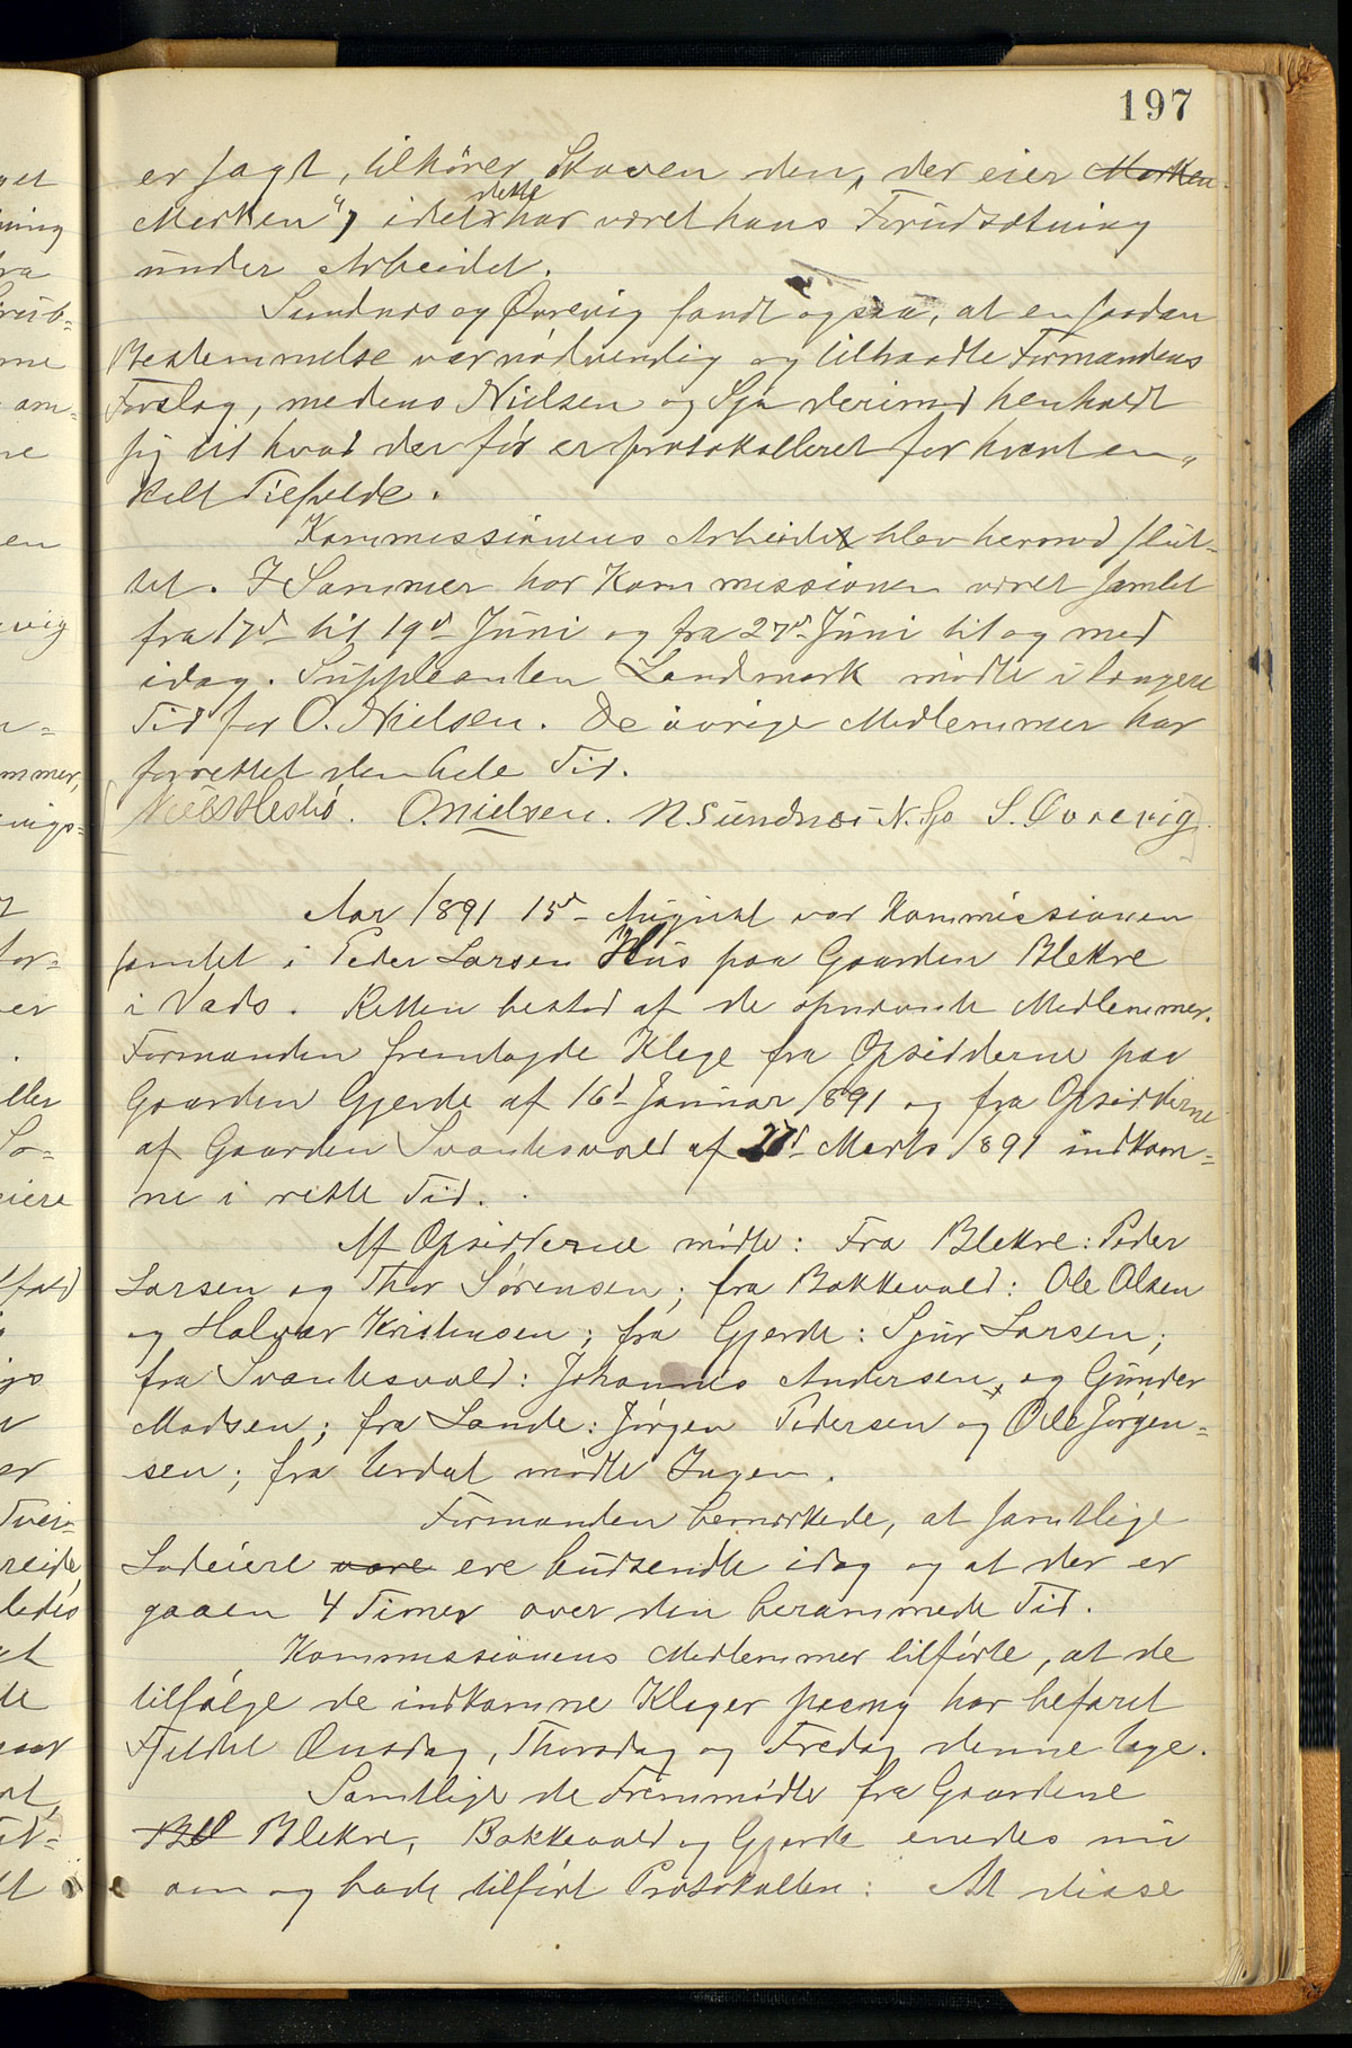 197
er sagt, tilhører Skoven den, der eier Marken
Marken", idet dette har været hans Forudsætning
under Arbeidet.
Sundnæs og Øvrevig fandt ogsaa, at en saadan
Bestemmelse var nødvendig og tiltraadte Formandens
Forslag, medens Nielsen og Sjo derimod henholdt
sig til hvad der før er protokolleret for hvert en„
kelt Tilfælde.
Kommissionens Arbeide blev hermed slut-
tet. I Sommer har Kommissionen været samlet
fra 17d til 19d Juni og fra 27d Juni til og med
idag. Suppleanten Landmark mødte i længere
Tid for O. Nielsen. De øvrige Medlemmer har
forrettet den hele Tid.
O. Nielsen. N. Sundnæs N. Sjo S. Øvrevig.
Aar 1891 15d August var Kommissionen
samlet i Peder Larsen Hus paa Gaarden Blekre
i Vads. Retten bestod af de opnævnte Medlemmer.
Formanden fremlagde Klage fra Opsidderne paa
Gaarden Gjerde af 16d Januar 1891 og fra Opsidderne
af Gaarden Svantesvold af 27d Marts 1891 indkom=
ne i rette Tid.
Af Opsidderne mødte: Fra Blekre: Peder
Larsen og Thor Sørensen; fra Bakkevold: Ole Olsen
og Halvor Kristensen; fra Gjerde: Sjur Larsen;
fra Svantesvold: Johannes Andersen, og Gunder
Madsen; fra Lande: Jørgen Pedersen og Ole Jørgen=
sen; fra mødte Ingen.
Formanden bemærkede, at samtlige
Lodeiere vare ere budsendte idag og at der er
gaaen 4 Timer over den berammede Tid.
Kommissionens Medlemmer tilførte, at de
tilfølge de indkomne Klager paany har befaret
Fjeldet Onsdag, Thorsdag og Fredag denne Uge.
Samtlige de Fremmødte fra Gaardene
Bl Blekre, Bakkevold og Gjerde enedes nu
om og bade tilført Protokollen: At disse